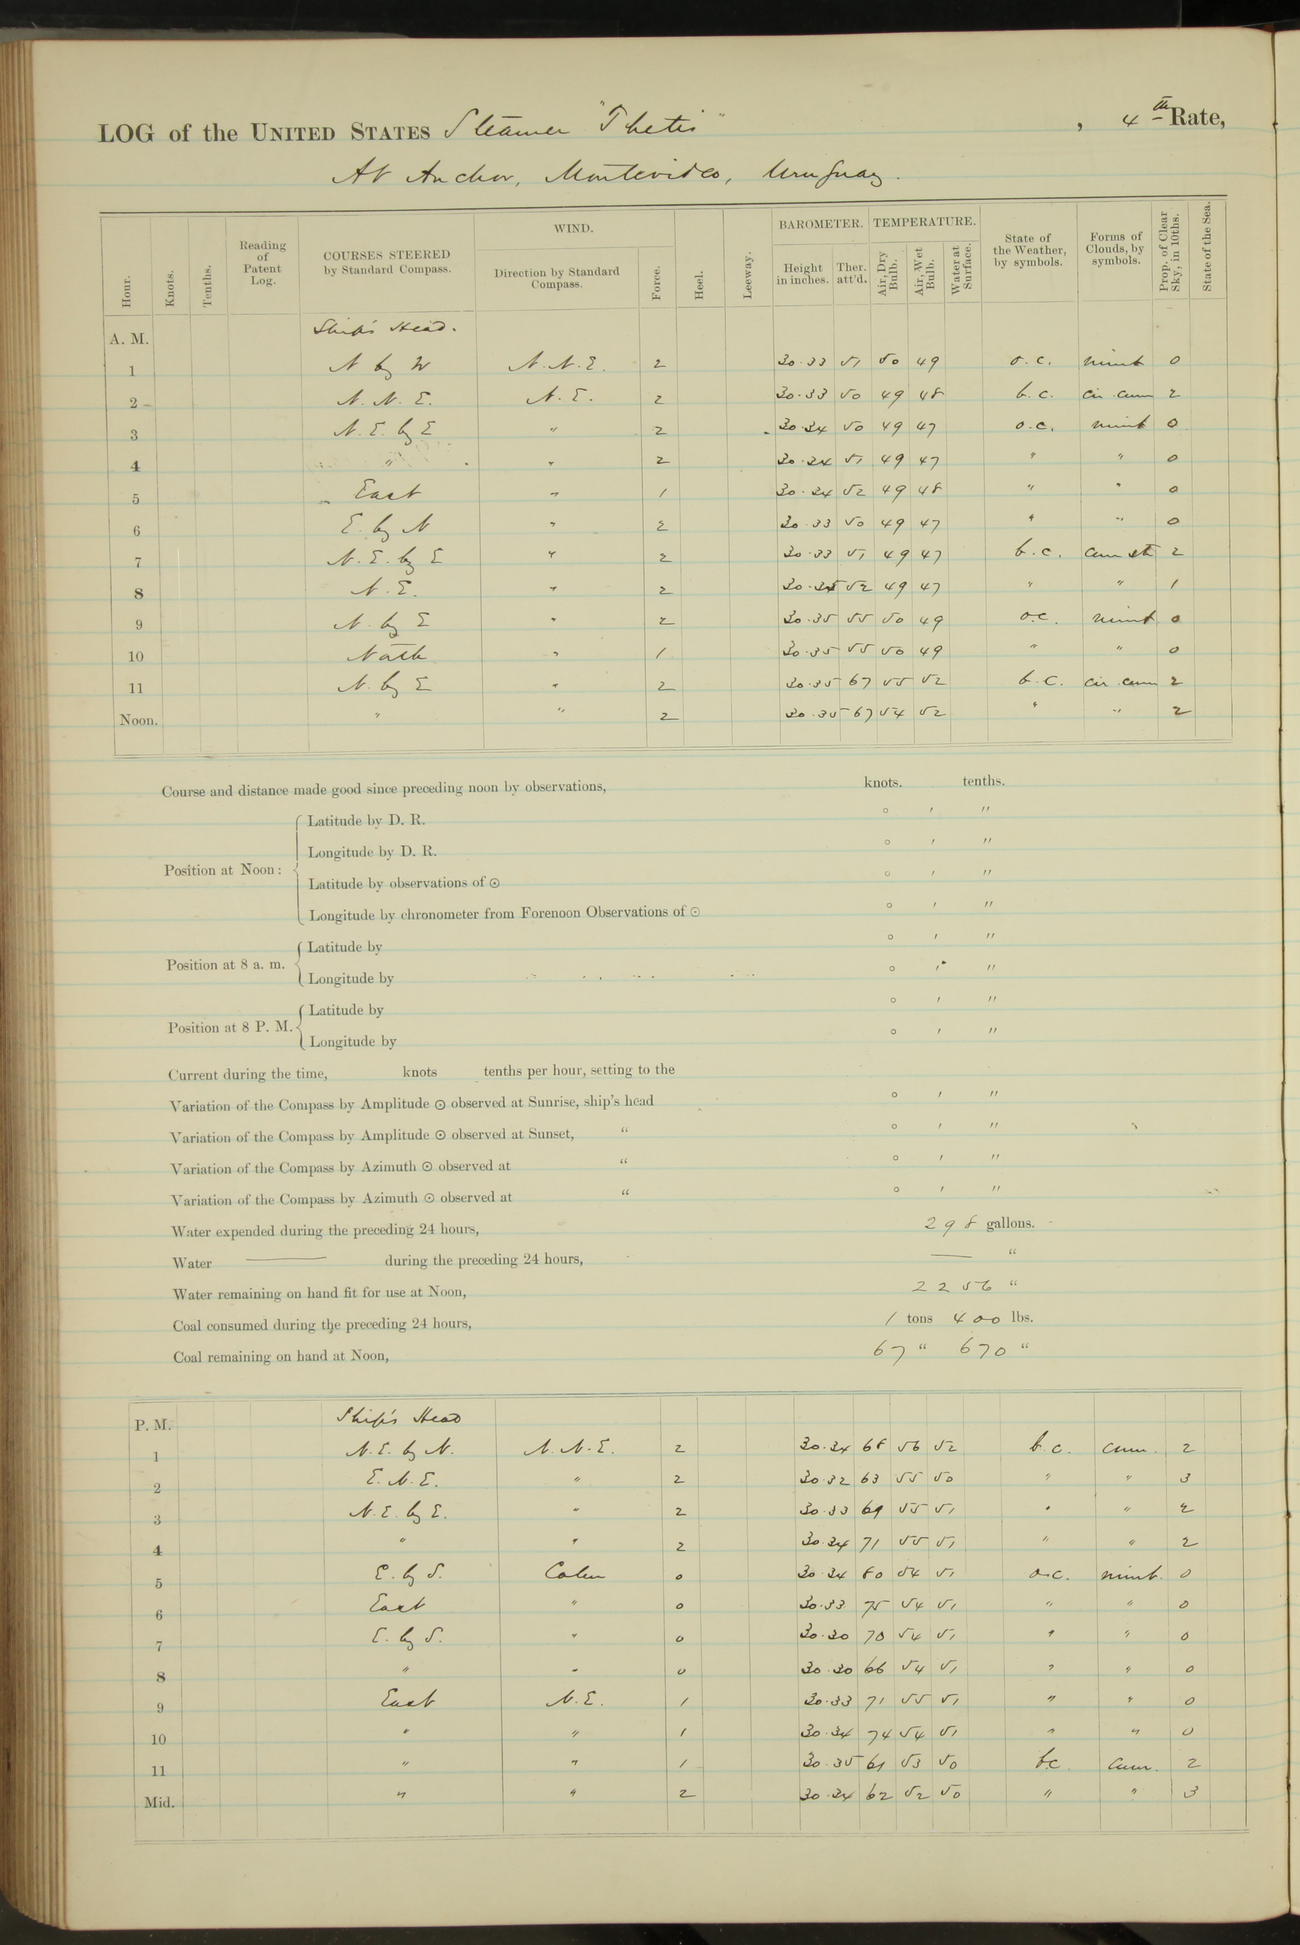 LOG of the UNITED STATES Steamer "Thetis", 4th Rate,
At Anchor, Montevideo, Uruguay.
Hour. Knots. Tenths. Reading of Patent Log. COURSES STEERED by Standard Compass. WIND. Direction by Standard Compass. Force. Heel. Leeway. BAROMETER. Height in inches. Ther. att'd. TEMPERATURE. Air, Dry Bulb. Air, Wet Bulb. Water at Surface. State of the Weather, by symbols. Forms of Clouds, by symbols. Prop. of Clear Sky, in 10ths. State of the Sea.
A. M. Ship's Head.
1 N by W N.N.E. 2 30.33 51 50 49 o.c. nimb 0
2 N.N.E. N.E. 2 30.33 50 49 48 b.c. cir. cum 2
3 N.E. by E " 2 30.34 50 49 47 o.c. nimb 0
4 " " 2 30.34 51 49 47 " " 0
5 East " 1 30.34 52 49 48 " " 0
6 E. by N " 2 30.33 50 49 47 " " 0
7 N.E. by E " 2 30.33 51 49 47 b.c. cum st 2
8 N.E. " 2 30.35 52 49 47 " " 1
9 N. by E " 2 30.35 55 50 49 o.c. nimb 0
10 North " 1 30.35 55 50 49 " " 0
11 N. by E " 2 30.35 67 55 52 b.c. cir. cum 2
Noon. " " 2 30.35 67 54 52 " " 2
Course and distance made good since preceding noon by observations, knots. tenths.
Position at Noon: Latitude by D. R. ° ′ ″
Longitude by D. R. ° ′ ″
Latitude by observations of ⊙ ° ′ ″
Longitude by chronometer from Forenoon Observations of ⊙ ° ′ ″
Position at 8 a. m. Latitude by ° ′ ″
Longitude by ° ′ ″
Position at 8 P. M. Latitude by ° ′ ″
Longitude by ° ′ ″
Current during the time, knots tenths per hour, setting to the
Variation of the Compass by Amplitude ⊙ observed at Sunrise, ship's head ° ′ ″
Variation of the Compass by Amplitude ⊙ observed at Sunset, " ° ′ ″
Variation of the Compass by Azimuth ⊙ observed at " ° ′ ″
Variation of the Compass by Azimuth ⊙ observed at " ° ′ ″
Water expended during the preceding 24 hours, 298 gallons.
Water —— during the preceding 24 hours, —— "
Water remaining on hand fit for use at Noon, 2256 "
Coal consumed during the preceding 24 hours, 1 tons 400 lbs.
Coal remaining on hand at Noon, 67 " 670 "
P. M. Ship's Head
1 N.E. by N. N.N.E. 2 30.34 68 56 52 b.c. cum. 2
2 E.N.E. " 2 30.32 63 55 50 " " 3
3 N.E. by E. " 2 30.33 69 55 51 " " 2
4 " " 2 30.34 71 55 51 " " 2
5 E. by S. Calm 0 30.34 80 54 51 o.c. nimb. 0
6 East " 0 30.33 75 54 51 " " 0
7 E. by S. " 0 30.30 70 54 51 " " 0
8 " " 0 30.30 66 54 51 " " 0
9 East N.E. 1 30.33 71 55 51 " " 0
10 " " 1 30.34 74 54 51 " " 0
11 " " 1 30.35 61 53 50 b.c. cum. 2
Mid. " " 2 30.34 62 52 50 " " 3